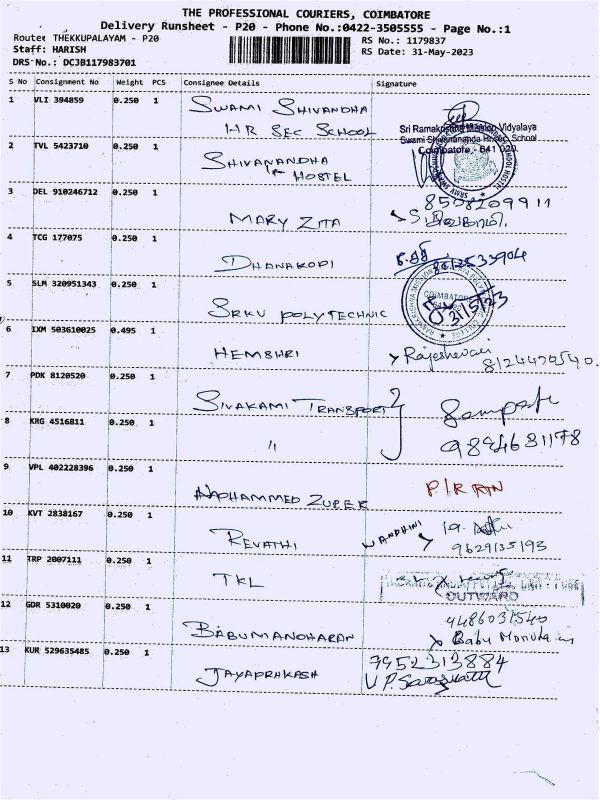 THE PROFESSIONAL COURIERS, COIMBATORE
Delivery Runsheet - P20 - Phone No.:0422-3505555 - Page No.:1
Route: THEKKUPALAYAM - P20
RS No.: 1179837
Staff: HARISH
RS Date: 31-May-2023
DRS No.: DCJB117983701
S No Consignment No Weight PCS Consignee Details Signature
1 VLI 394859 0.250 1 SWAMI SHIVANDHA
HR SEC SCHOOL
Sri Ramakrishna Mission Vidyalaya
Swami Shivananda Hr. Sec. School
Coimbatore - 641 020.
2 TVL 5423710 0.250 1 SHIVANANDHA
HOSTEL
3 DEL 910246712 0.250 1 MARY ZITA
8508209911
4 TCG 177075 0.250 1 DHANAKODI
5 SLM 320951343 0.250 1 SRKV POLYTECHNIC
COIMBATORE
31/5/23
6 IXM 503610025 0.495 1 HEMSHRI
Rajeshwari
8124470540.
7 PDK 8120520 0.250 1 SIVAKAMI TRANSPORT
8 KRG 4516811 0.250 1 "
9894681178
9 VPL 402228396 0.250 1 MOHAMMED ZUBER
P/R RTN
10 KVT 2838167 0.250 1 REVATHI
NANDHINI
9629135193
11 TRP 2007111 0.250 1 TKL
OUTWARD
12 GDR 5310020 0.250 1 BABUMANOHARAN
9486031540
Babu
13 KUR 529635485 0.250 1 JAYAPRAKASH
7952313884
V.P. Saraswathi